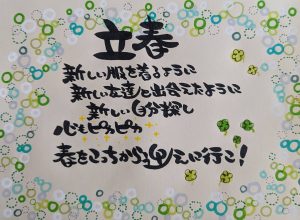 立春
新しい服を着るように
新しい友達と出会えたように
新しい自分探し
心もピカピカ
春をこっちから迎えに行こ!